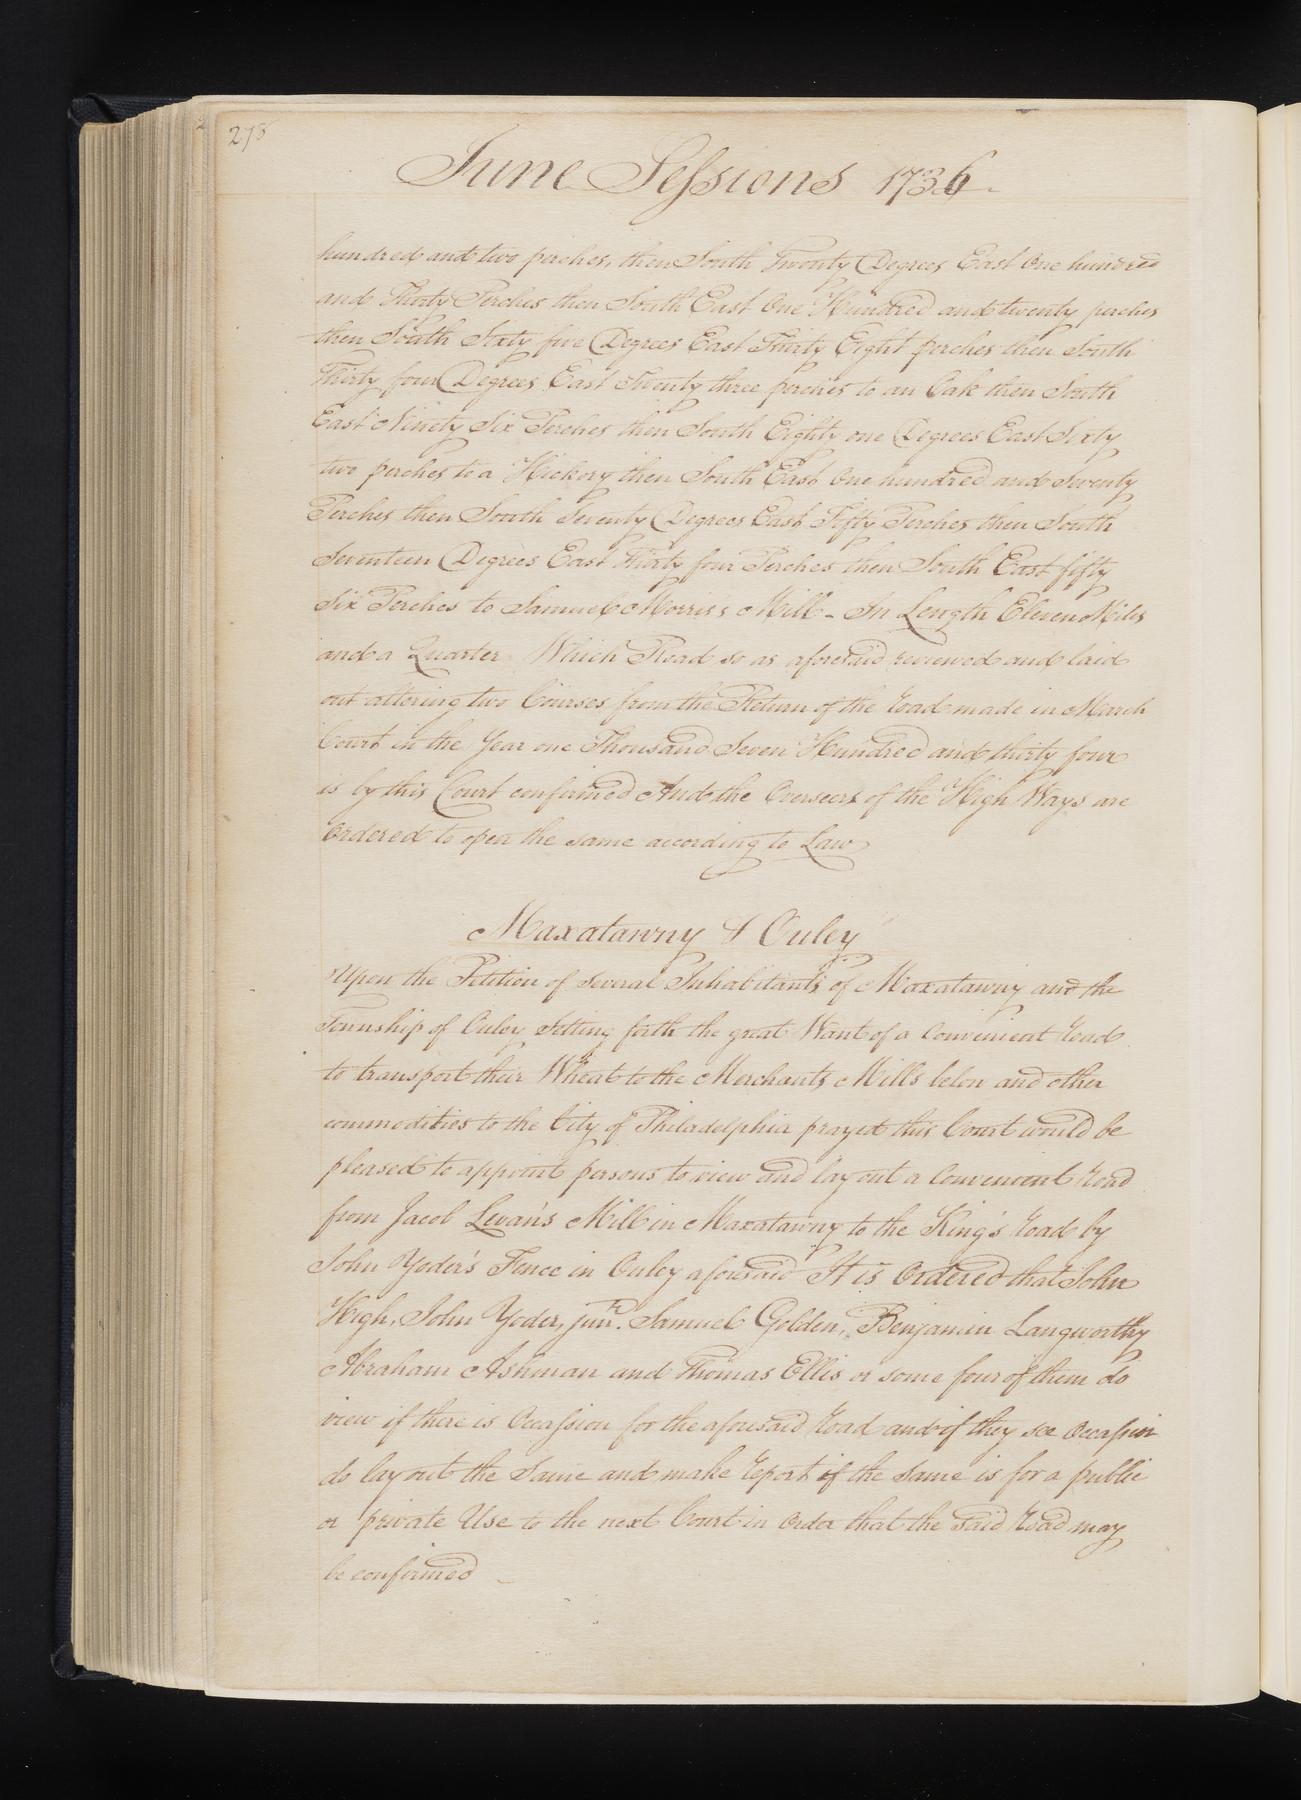 278
June Sessions 1736.
hundred and two perches, then South Twenty Degrees East One hundred
and Thirty Perches then South East One Hundred and twenty perches
then South Sixty five Degrees East Thirty Eight perches then South
Thirty four Degrees East Twenty three perches to an Oak then South
East Ninety Six Perches then South Eighty one Degrees East Sixty
two perches to a Hickory then South East One hundred and Seventy
Perches then South Seventy Degrees East Fifty Perches then South
Seventeen Degrees East Thirty four Perches then South East fifty
Six Perches to Samuel Morris's Mill - In Length Eleven Miles
and a Quarter Which Road so as aforesaid reviewed and laid
out altering two Courses from the Return of the Road made in March
Court in the Year one Thousand Seven Hundred and thirty four
is by this Court confirmed And the Overseers of the High Ways are
Ordered to open the same according to Law
Maxatawny & Ouley
Upon the Petition of several Inhabitants of Maxatawny and the
Township of Ouley Setting forth the great Want of a Convenient Road
to transport their Wheat to the Merchants Mills below and other
commodities to the City of Philadelphia prayed this Court would be
pleased to appoint persons to view and lay out a Convenient Road
from Jacob Levan's Mill in Maxatawny to the King's Road by
John Yoder's Fence in Ouley aforesaid It is Ordered that John
High, John Yoder, junr. Samuel Golden, Benjamin Langworthy
Abraham Ashman and Thomas Ellis or some four of them do
view if there is Occassion for the aforesaid Road and if they see Occassion
do lay out the Same and make report if the same is for a public
or private Use to the next Court in Order that the said Road may
be confirmed